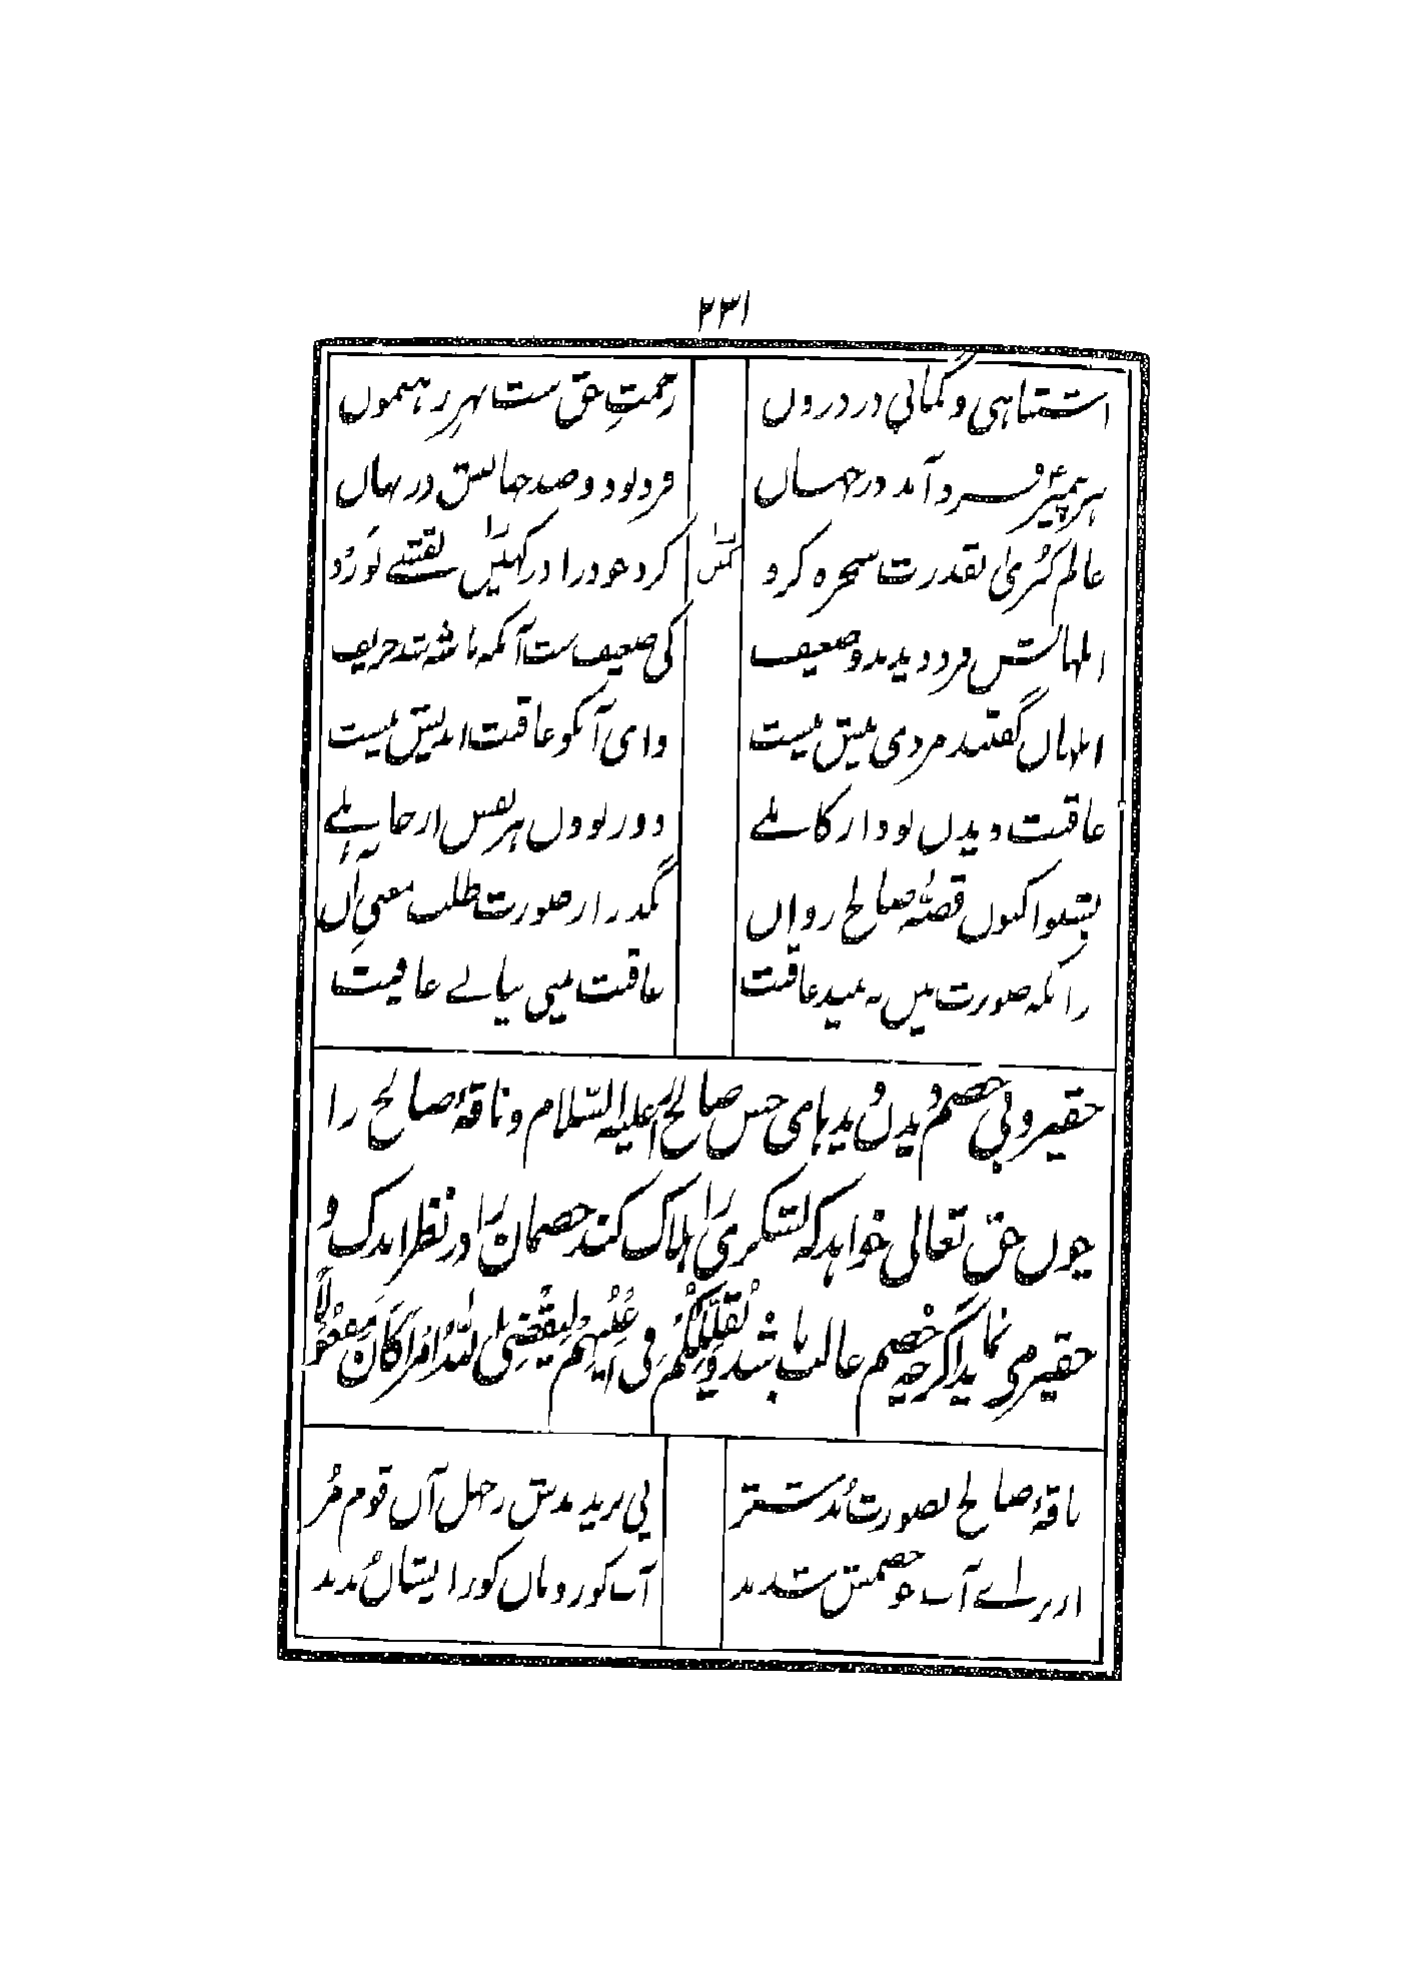 ۲۳۱
اشتباهی و گمانی در دروں رحمتِ حق ست بہرِ رہنموں
ہر پیمبر فرد آمد در جہاں فرد بود و صد جہانش در نہاں
عالم کبریٰ بقدرت سحرہ کرد کرد خود را در کہین نقشے نورد
ابلہانش فرد دیدند و ضعیف کی ضعیف ست آنکہ با شہ شد حریف
ابلہاں گفتند مردی بیش نیست وای آنکو عاقبت اندیش نیست
عاقبت دیدں بود از کاملے دور بودں ہر نفس از جاہلے
بشنو اکنوں قصۂ صالح رواں بگذر از صورت طلب معنیِ آں
زانکہ صورت بیں نہ بیند عاقبت عاقبت بینی بیابے عافیت
حقیر و بی خصم دیدن دیدہای حس صالح علیہ السّلام و ناقۂ صالح را
چوں حق تعالی خواہد کہ لشکری را ہلاک کند خصمان را در نظر اندک و
حقیر می نماید اگرچہ خصم غالب باشد وَیُقَلِّلُکُمْ فِی اَعْیُنِہِمْ لِیَقْضِیَ اللّٰہُ اَمْرًا کَانَ مَفْعُوْلًا
ناقۂ صالح بصورت بُد شتر پی بریدندش ز جہل آں قوم مُر
از براے آب چو خصمش شدند آب کور و ناں کور ایشاں بُدند